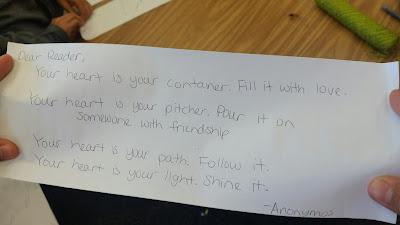 Dear Reader,
Your heart is your contaner. Fill it with love.
Your heart is your pitcher. Pour it on
somewone with friendship
Your heart is your path. Follow it.
Your heart is your light. Shine it.
-Anonymos